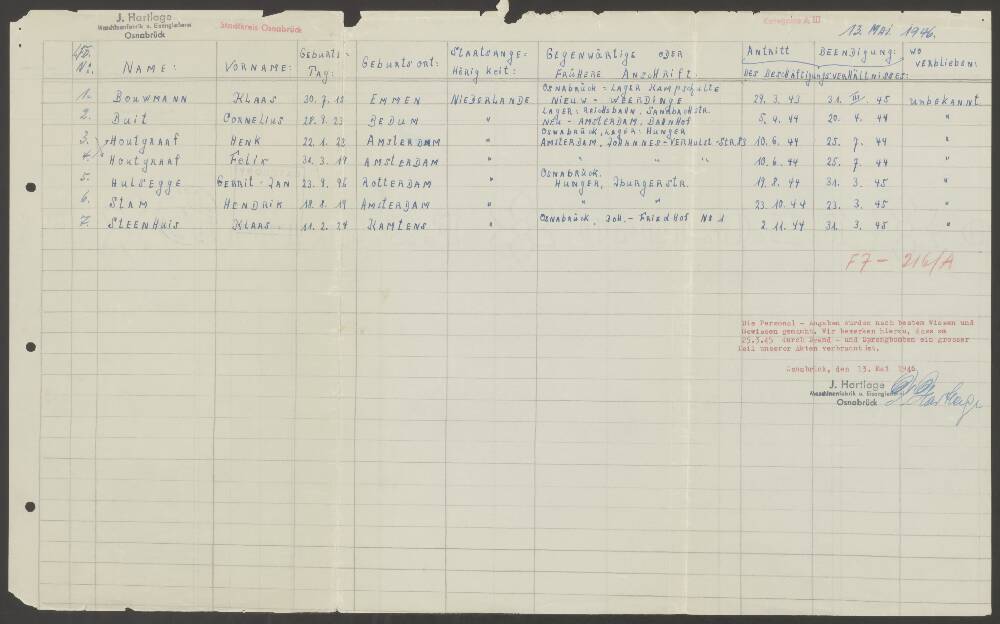 J. Hartlage
Maschinenfabrik u. Eisengießerei
Osnabrück
Stadtkreis Osnabrück
Kategorie A III
13. MAI 1946.
Lfd. Nr. NAME: VORNAME: Geburts-Tag: Geburtsort: Staatsange-hörigkeit: Gegenwärtige oder frühere Anschrift: Antritt Beendigung: des Beschäftigungsverhältnisses: wo verblieben:
Osnabrück - Lager Kampschulte
1. BOUWMANN KLAAS 30. 7. EMMEN NIEDERLANDE NIEUW - WEERDINGE 29. 3. 43 31. III. 45 unbekannt
Lager: Reichsbahn, Sandbachstr.
2. BUIT CORNELIUS 28. 9. 23 BEDUM " NEU - AMSTERDAM, BAHNHOF 5. 4. 44 20. 4. 44 "
Osnabrück, Lager: Hunger
3. Houtgraaf HENK 22. 1. 23 AMSTERDAM " AMSTERDAM, JOHANNES-VERHULST-STR. 83 10. 6. 44 25. 7. 44 "
4. Houtgraaf Felix 31. 3. 19 AMSTERDAM " " " " 10. 6. 44 25. 7. 44 "
Osnabrück.
5. HULSEGGE GERRIT-JAN 23. 9. 96 ROTTERDAM " HUNGER, Iburgerstr. 19. 8. 44 31. 3. 45 "
6. STAM HENDRIK 18. 8. 19 AMSTERDAM " " " 23. 10. 44 23. 3. 45 "
7. STEENHUIS KLAAS 11. 2. 24 KAMTENS " Osnabrück, Joh.- Friedhof No 1 2. 11. 44 31. 3. 45 "
F7 - 216/A
Die Personal - Angaben wurden nach bestem Wissen und
Gewissen gemacht. Wir bemerken hierzu, dass am
25.3.45 durch Brand - und Sprengbomben ein grosser
Teil unserer Akten verbrannt ist.
Osnabrück, den 13. Mai 1946.
J. Hartlage
Maschinenfabrik u. Eisengießerei
Osnabrück
Hartlage